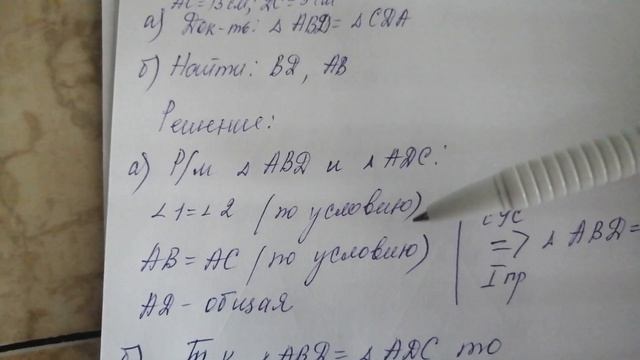 AC = 13 см; DC = 5 см
а) Док-ть: △ ABD = △ CDA
б) Найти: BD, AB
Решение:
а) Р/м △ ABD и △ ADC:
∠1 = ∠2 (по условию)
AB = AC (по условию)
AD - общая
СУС
=> △ ABD =
I пр
б) Т. к. △ ABD = △ ADC то